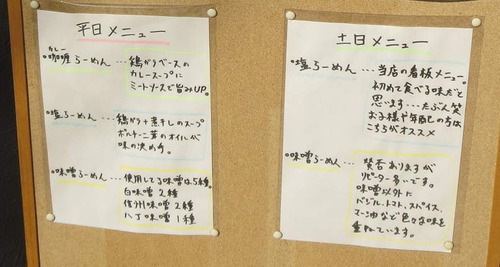 平日メニュー
カレー
・咖喱らーめん…鶏がらベースの
カレースープに
ミートソースで旨みUP。
・塩らーめん…鶏がら+煮干しのスープ
ポルチーニ茸のオイルが
味の決め手。
・味噌らーめん…使用してる味噌は5種。
白味噌 2種
信州味噌 2種
八丁味噌 1種
土日メニュー
・塩らーめん…当店の看板メニュー。
初めて食べる味だと
思います…たぶん笑
お子様や年配の方は
こちらがオススメ
・味噌らーめん…賛否ありますが
リピーター多いです。
味噌以外に
バジル、トマト、スパイス、
マー油など色々な味を
重ねています。